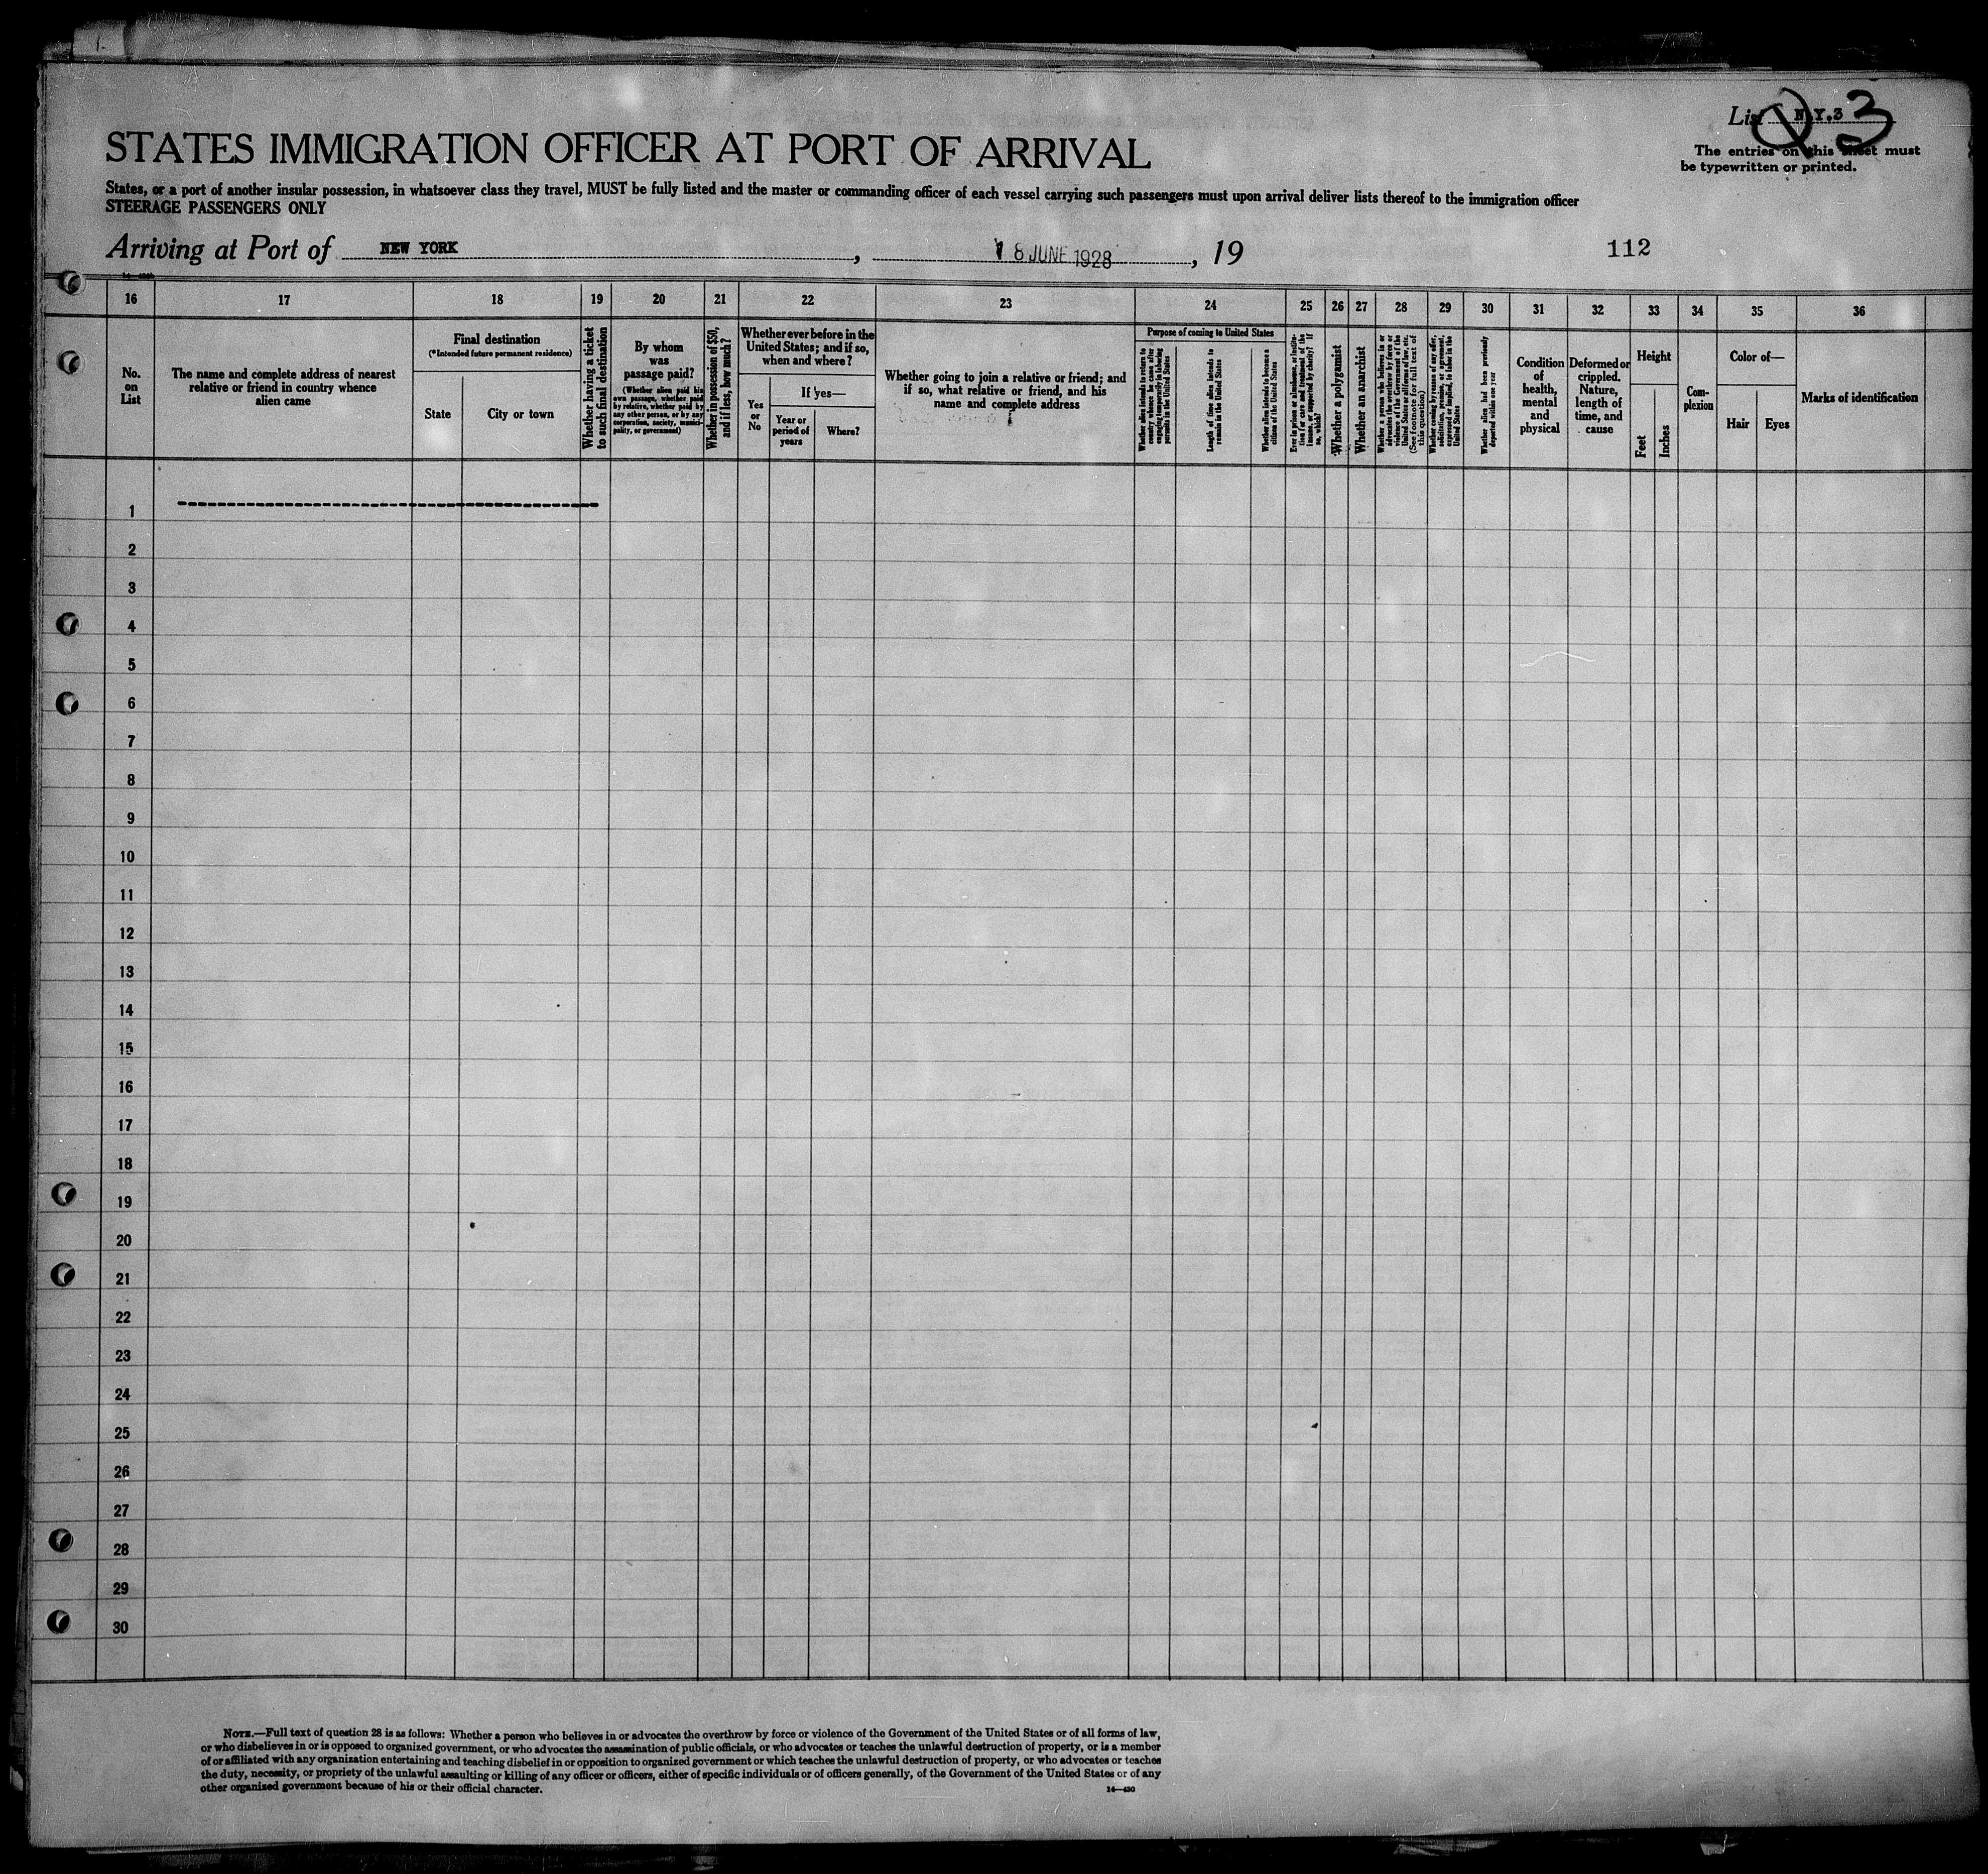 1.
List N.Y.3 3
STATES IMMIGRATION OFFICER AT PORT OF ARRIVAL
The entries on this sheet must
be typewritten or printed.
States, or a port of another insular possession, in whatsoever class they travel, MUST be fully listed and the master or commanding officer of each vessel carrying such passengers must upon arrival deliver lists thereof to the immigration officer
STEERAGE PASSENGERS ONLY
Arriving at Port of NEW YORK, 18 JUNE 1928, 19
112
16 17 18 19 20 21 22 23 24 25 26 27 28 29 30 31 32 33 34 35 36
No.
on
List
The name and complete address of nearest
relative or friend in country whence
alien came
Final destination
(*Intended future permanent residence)
State
City or town
Whether having a ticket
to such final destination
By whom
was
passage paid?
(Whether alien paid his
own passage, whether paid
by relative, whether paid by
any other person, or by any
corporation, society, munici-
pality, or government)
Whether in possession of $50,
and if less, how much?
Whether ever before in the
United States; and if so,
when and where?
Yes
or
No
If yes—
Year or
period of
years
Where?
Whether going to join a relative or friend; and
if so, what relative or friend, and his
name and complete address
Purpose of coming to United States
Whether alien intends to return to
country whence he came after
engaging temporarily in laboring
pursuits in the United States
Length of time alien intends to
remain in the United States
Whether alien intends to become a
citizen of the United States
Ever in prison or almshouse, or institu-
tion for care and treatment of the
insane, or supported by charity? If
so, which?
Whether a polygamist
Whether an anarchist
Whether a person who believes in or
advocates the overthrow by force or
violence of the Government of the
United States or all forms of law, etc.
(See footnote for full text of
this question)
Whether coming by reason of any offer,
solicitation, promise, or agreement,
expressed or implied, to labor in the
United States
Whether alien had been previously
deported within one year
Condition
of
health,
mental
and
physical
Deformed or
crippled.
Nature,
length of
time, and
cause
Height
Feet
Inches
Com-
plexion
Color of—
Hair
Eyes
Marks of identification
1
2
3
4
5
6
7
8
9
10
11
12
13
14
15
16
17
18
19
20
21
22
23
24
25
26
27
28
29
30
NOTE.—Full text of question 28 is as follows: Whether a person who believes in or advocates the overthrow by force or violence of the Government of the United States or of all forms of law,
or who disbelieves in or is opposed to organized government, or who advocates the assassination of public officials, or who advocates or teaches the unlawful destruction of property, or is a member
of or affiliated with any organization entertaining and teaching disbelief in or opposition to organized government or which teaches the unlawful destruction of property, or who advocates or teaches
the duty, necessity, or propriety of the unlawful assaulting or killing of any officer or officers, either of specific individuals or of officers generally, of the Government of the United States or of any
other organized government because of his or their official character.
14—430